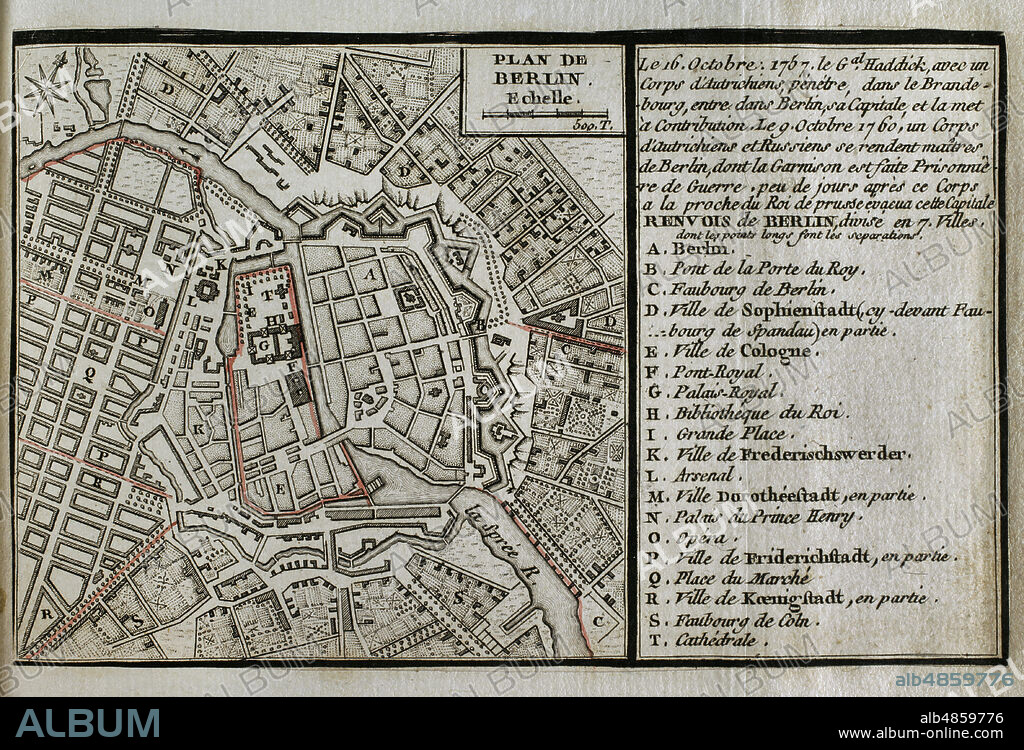 PLAN DE
BERLIN.
Echelle.
500.T.
Le 16. Octobre. 1767. le G.al Haddick, avec un
Corps d'Autrichiens, pénétre, dans le Brande-
bourg, entre dans Berlin, sa Capitale, et la met
à Contribution. Le 9. Octobre 1760, un Corps
d'Autrichiens et Russiens se rendent maîtres
de Berlin, dont la Garnison est faite Prisonniè-
re de Guerre, peu de jours après ce Corps
a la proche du Roi de prusse evacua cette Capitale
RENVOIS de BERLIN, divisé en 7. Villes.
dont les points longs font les separations.
A. Berlin.
B. Pont de la Porte du Roy.
C. Faubourg de Berlin.
D. Ville de Sophienstadt (, cy-devant Fau-
bourg de Spandau) en partie.
E. Ville de Cologne.
F. Pont-Royal.
G. Palais-Royal.
H. Bibliothèque du Roi.
I. Grande Place.
K. Ville de Frederischswerder.
L. Arsenal.
M. Ville Dorothéestadt, en partie.
N. Palais du Prince Henry.
O. Opera.
P. Ville de Friderichstadt, en partie.
Q. Place du Marché
R. Ville de Kœnigstadt, en partie.
S. Faubourg de Coln.
T. Cathédrale.
D
D
A
B
D
C
K
N
M
M
L
O
I
T
E
H
G
F
P
P
P
Q
K
P
R
E
la Spree R.
R
S
S
C
ALBUM
alb4859776
ALBUM
alb4859776
www.album-online.com